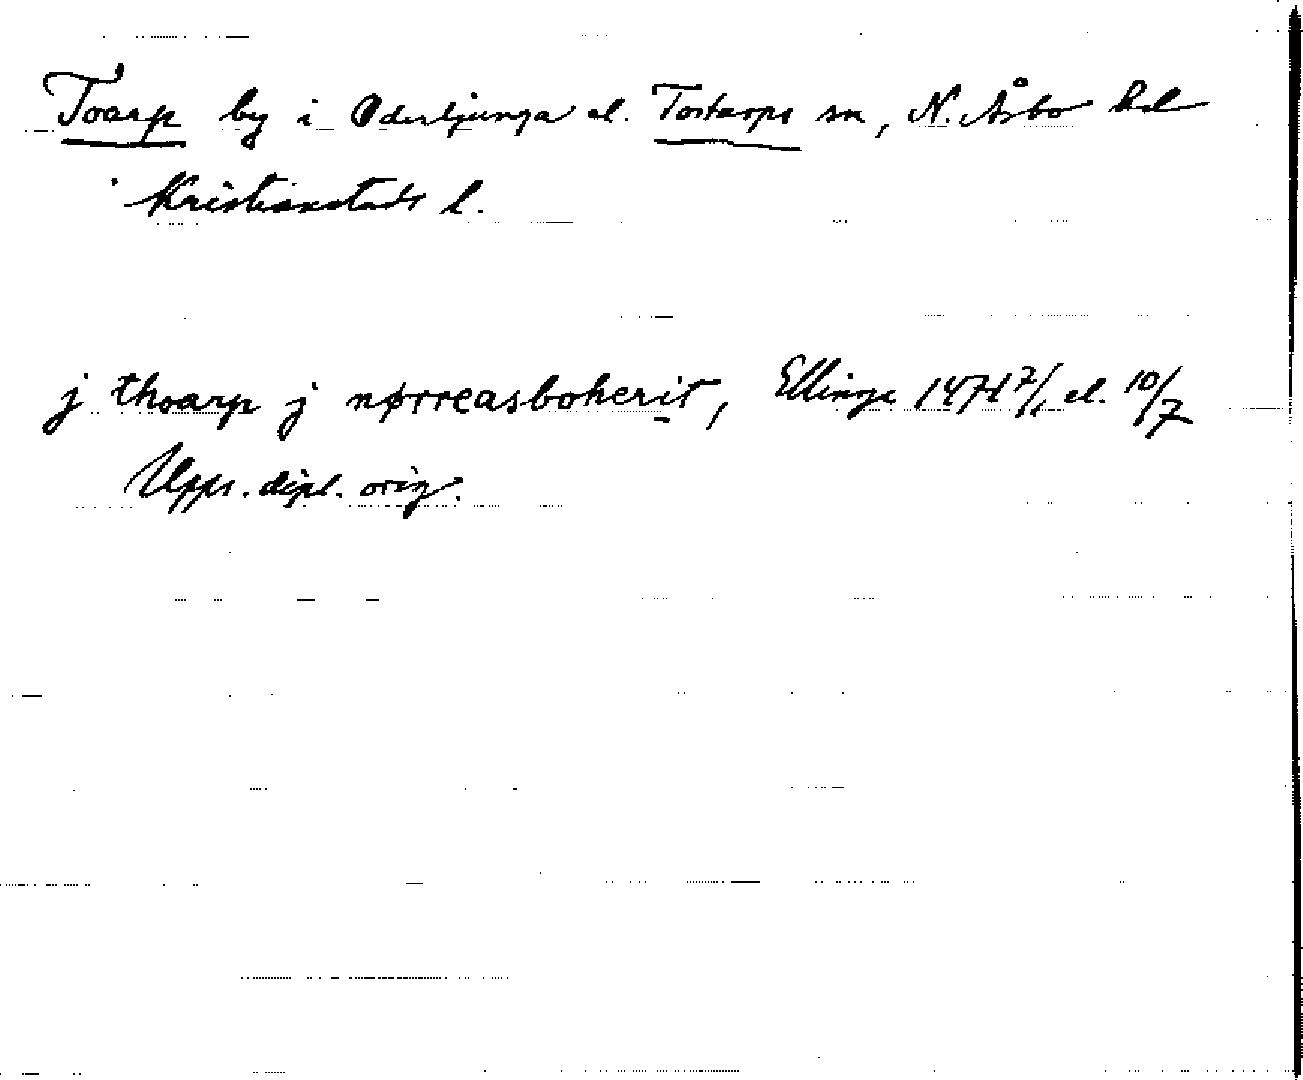 Toarp by i Oderljunga el. Tostarps sn, N. Åsbo hd
Kristianstads l.
j thoarp j nørreasboherit, Ellinge 1471 7/1 el. 10/7
Upps. dipl. orig.